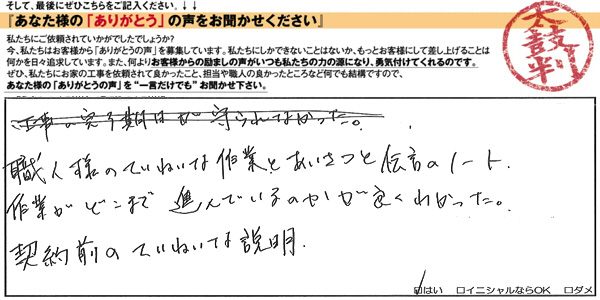 そして、最後にぜひこちらをご記入ください。↓↓
『あなた様の「ありがとう」の声をお聞かせください』
私たちにご依頼されていかがでしたでしょうか?
今、私たちはお客様から「ありがとうの声」を募集しています。私たちにしかできないことはないか、もっとお客様にして差し上げることは
何かを日々追求しています。また、何よりお客様からの励ましの声がいつも私たちの力の源になり、勇気付けてくれるのです。
ぜひ、私たちにお家の工事を依頼されて良かったこと、担当や職人の良かったところなど何でも結構ですので、
あなた様の「ありがとうの声」を“一言だけでも”お聞かせ下さい。
太鼓判
工事の完了期日が守られてなかった。
職人様のていねいな作業とあいさつと伝言のノート。
作業がどこまで進んでいるのかが良くわかった。
契約前のていねいな説明。
☑はい ロイニシャルならOK ロダメ